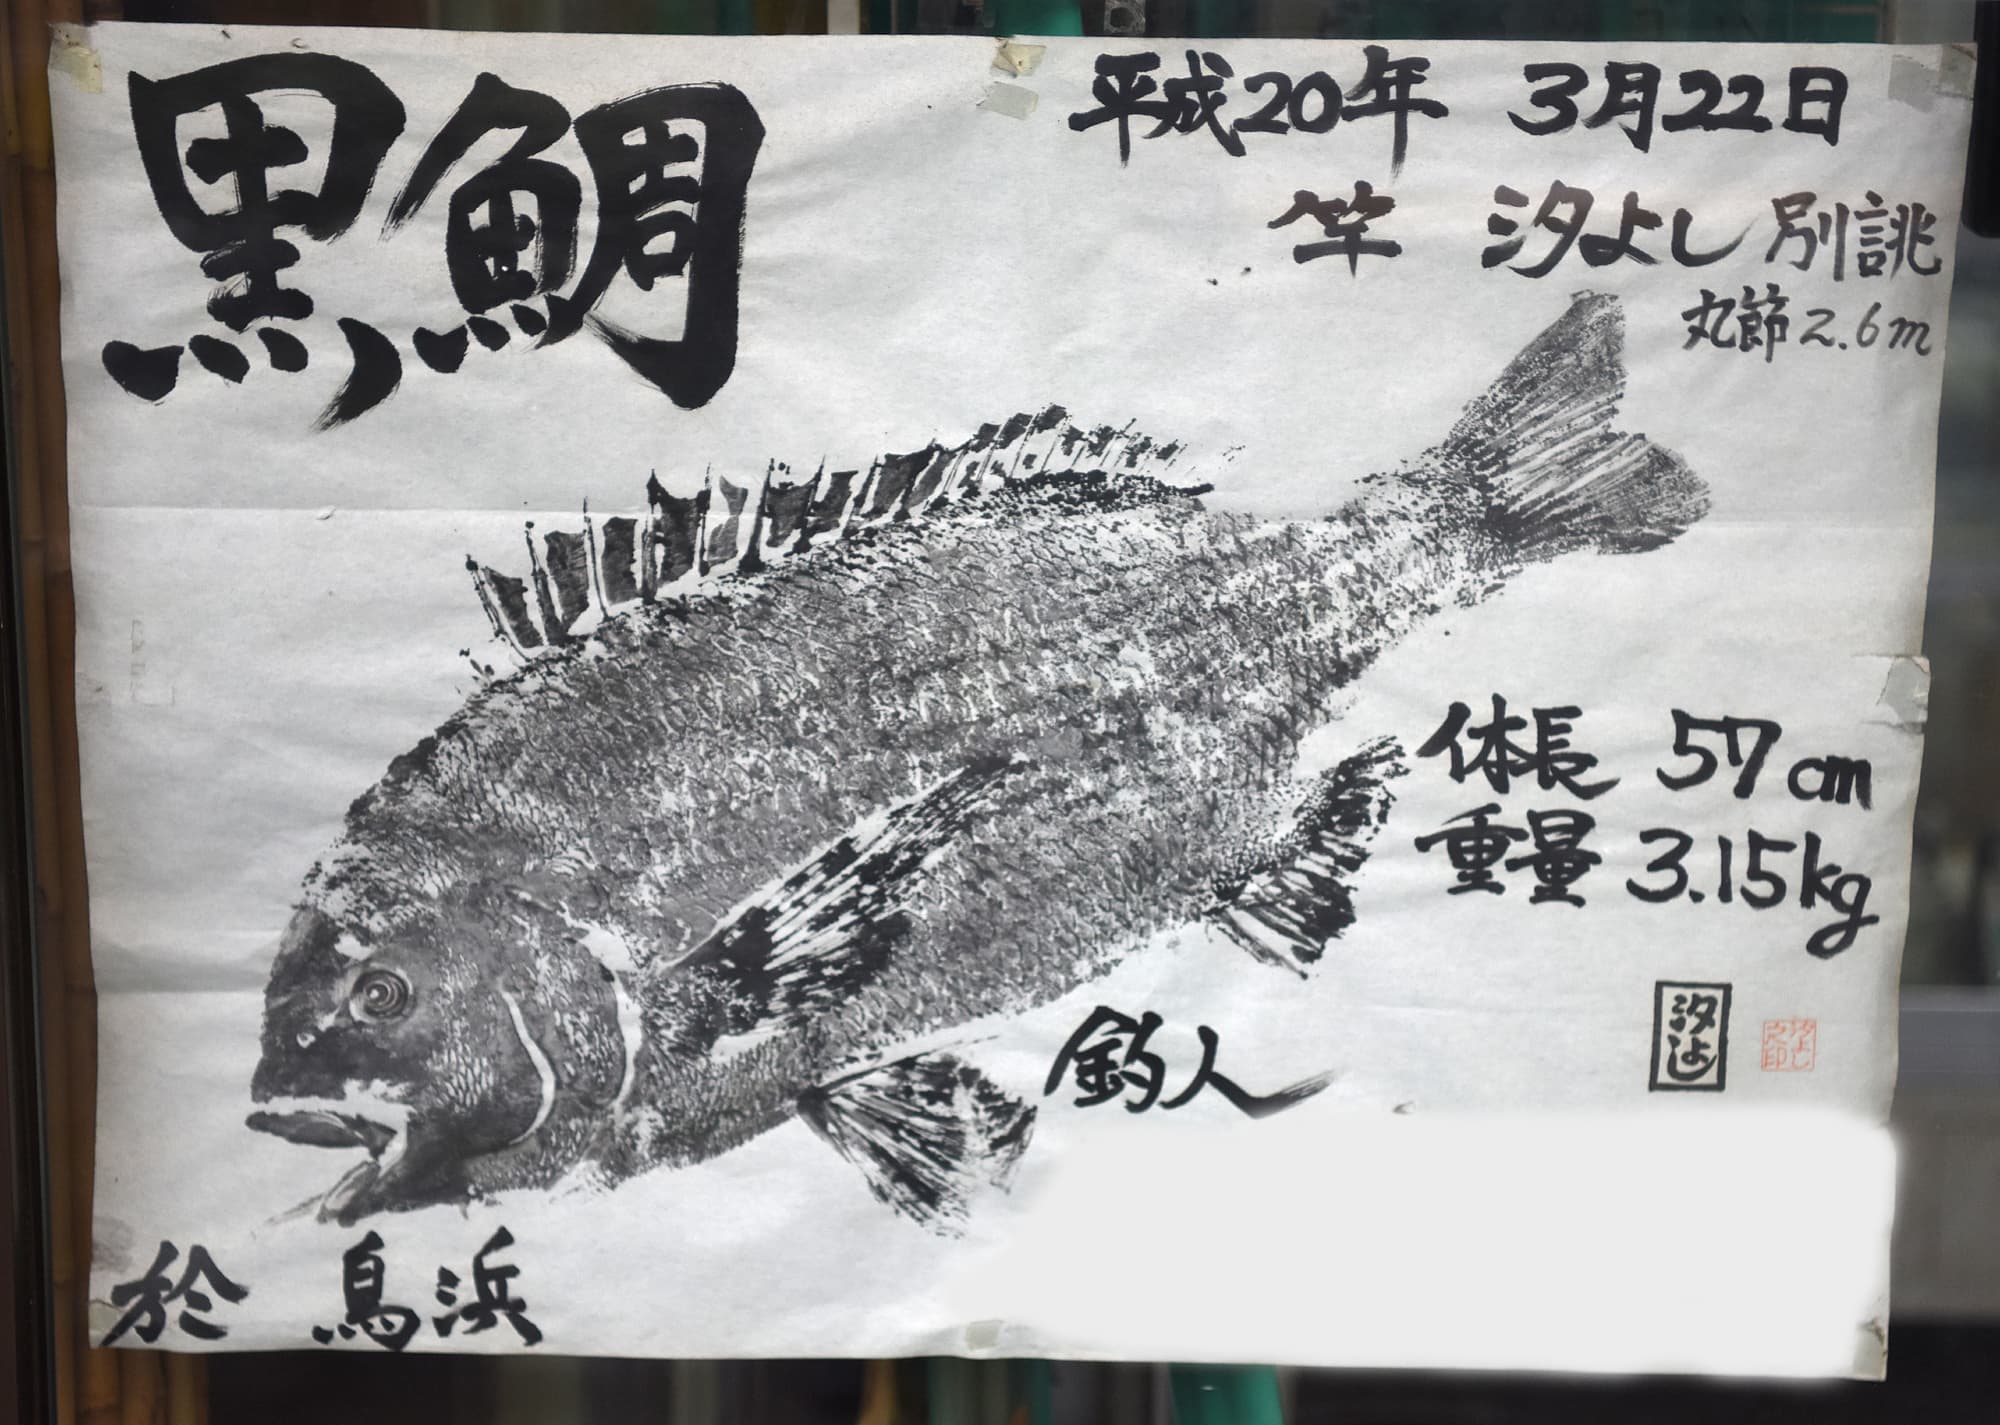 黒鯛
平成20年 3月22日
竿 汐よし別誂
丸節2.6m
体長 57cm
重量 3.15kg
汐よし
釣人
於 鳥浜